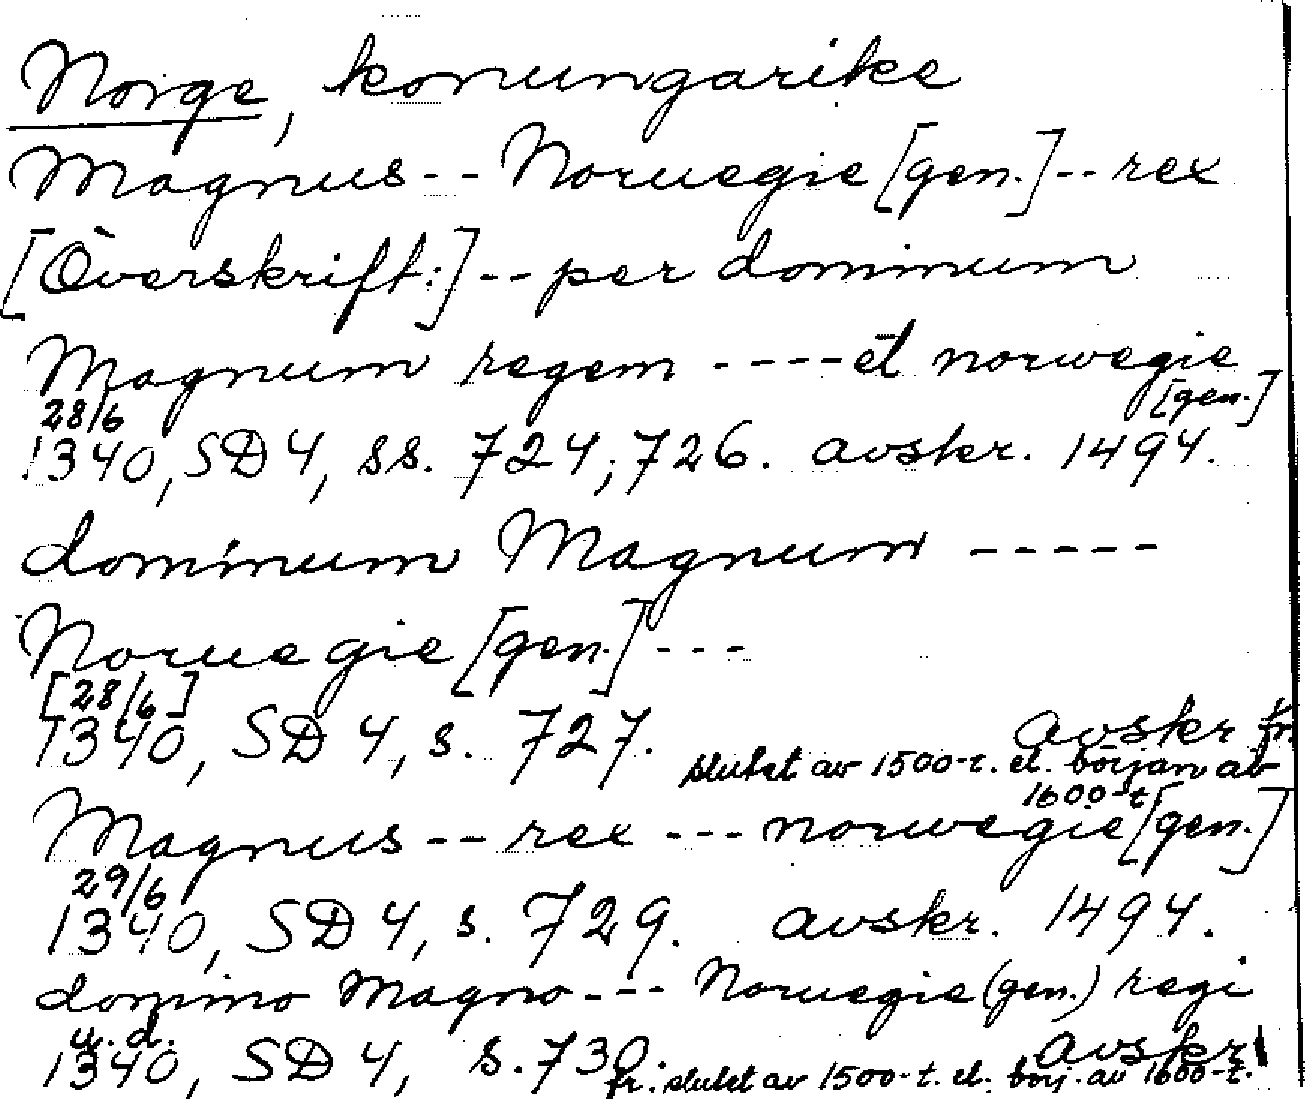 Norge, konungarike
Magnus -- Noruegie [gen.] -- rex
[Överskrift:] -- per dominum
Magnum regem ---- et norwegie
[gen.]
28/6
1340, SD 4, ss. 724, 726. avskr. 1494.
dominum Magnum -----
Noruegie [gen.] ---
[28/6]
1340, SD 4, s. 727. avskr. fr.
slutet av 1500-t. el. början av
1600-t.
Magnus -- rex --- norwegie [gen.]
29/6
1340, SD 4, s. 729. avskr. 1494.
domino Magno --- Noruegie (gen.) regi
u. d.
1340, SD 4, s. 730. avskr.
fr. slutet av 1500-t. el. börj. av 1600-t.